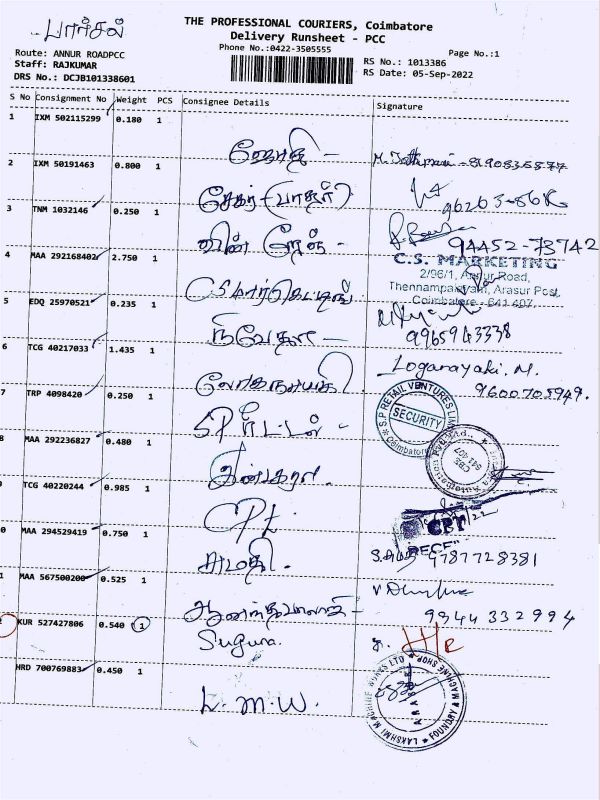 பார்சல்
THE PROFESSIONAL COURIERS, Coimbatore
Delivery Runsheet - PCC
Phone No.:0422-3505555
Page No.:1
Route: ANNUR ROADPCC
Staff: RAJKUMAR
DRS No.: DCJB101338601
RS No.: 1013386
RS Date: 05-Sep-2022
S No Consignment No Weight PCS Consignee Details Signature
1 IXM 502115299 0.180 1
ஜோதி - M. - 8190835877
2 IXM 50191463 0.800 1
சேகர் (பாதர்)
3 TNM 1032146 0.250 1
வின் - 94452-73742
4 MAA 292168402 2.750 1
C.S. MARKETING
2/96/1, Arasur Road,
Thennampalayam, Arasur Post,
Coimbatore - 641 407.
CS மார்கெட்டிங்
5 EDQ 25970521 0.235 1
நிவேதா - 9965943338
6 TCG 40217033 1.435 1
லோகநாயகி Loganayaki, M.
9600705949.
7 TRP 4098420 0.250 1
S.P RETAIL VENTURES LIMITED SECURITY Coimbatore
SP ரீட்டல் -
8 MAA 292236827 0.480 1
9 TCG 40220244 0.985 1
CPt. CPT
0 MAA 294529419 0.750 1
சுமதி. 9787728381
1 MAA 567500200 0.525 1
ஆனந்தவள்ளி - 9944332994
2 KUR 527427806 0.540 1
Suguna. H/R
HRD 700769883 0.450 1
L. M. W.
LAKSHMI MACHINE WORKS LTD FOUNDRY & MACHINE SHOP